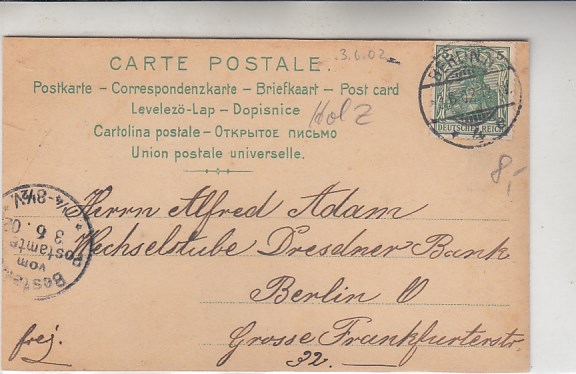 3.6.02
CARTE POSTALE.
Postkarte – Correspondenzkarte – Briefkaart – Post card
Levelező-Lap – Dopisnice
Cartolina postale – Открытое письмо
Union postale universelle.
Holz
BERLIN
5
5
DEUTSCHES REICH
8,-
Bestellt
vom
Postamte
3.6.02
7¼-8½V.
Herrn Alfred Adam
Wechselstube Dresdner Bank
Berlin O
Grosse Frankfurterstr.
frej. 32.